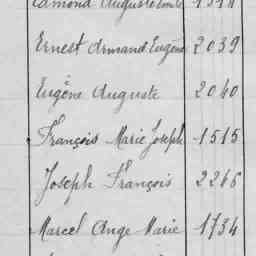 Edmond Auguste
Ernest Armand Eugène 2039
Eugène Auguste 2040
François Marie Joseph 1515
Joseph François 2266
Marcel Ange Marie 1734